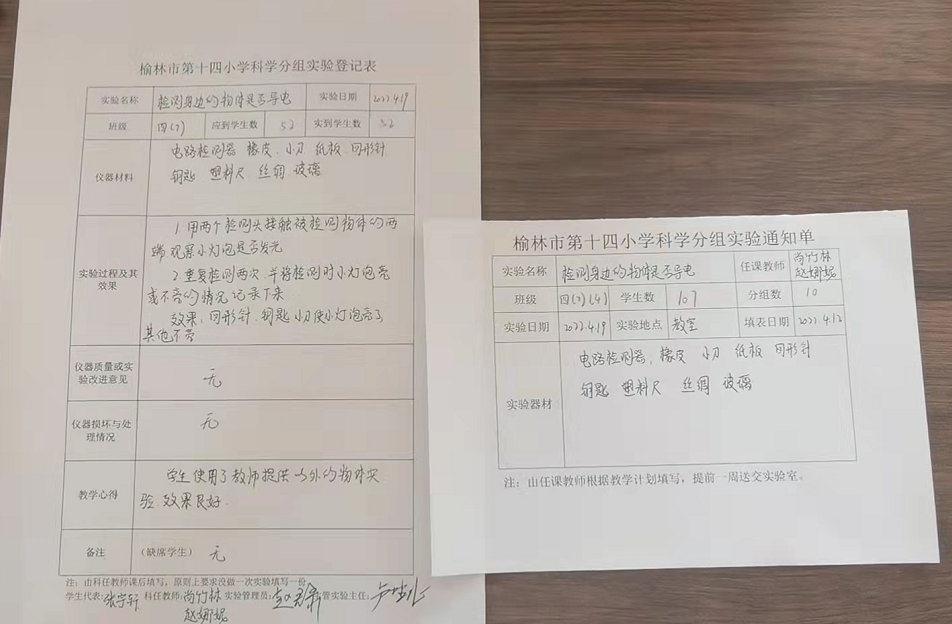 榆林市第十四小学科学分组实验登记表
实验名称 检测身边的物体是否导电 实验日期 2022.4.19
班级 四(3) 应到学生数 52 实到学生数 52
仪器材料 电路检测器 橡皮、小刀 纸板、回形针
钥匙 塑料尺 丝绸 玻璃
实验过程及其效果 1.用两个检测头接触被检测物体的两
端 观察小灯泡是否发光
2.重复检测两次 并将检测时小灯泡亮
或不亮的情况记录下来
效果:回形针、钥匙 小刀使小灯泡亮了
其他不亮
仪器质量或实验改进意见 无
仪器损坏与处理情况 无
教学心得 学生使用了教师提供以外的物体实
验 效果良好.
备注 (缺席学生) 无
注:由科任教师课后填写,原则上要求没做一次实验填写一份
学生代表: 张宇轩 科任教师: 尚竹林 实验管理员: 管实验主任:
赵娜妮
榆林市第十四小学科学分组实验通知单
实验名称 检测身边的物体是否导电 任课教师 尚竹林
赵娜妮
班级 四(3)(4) 学生数 107 分组数 10
实验日期 2022.4.19 实验地点 教室 填表日期 2022.4.12
实验器材 电路检测器、橡皮 小刀 纸板 回形针
钥匙 塑料尺 丝绸 玻璃
注:由任课教师根据教学计划填写,提前一周送交实验室。